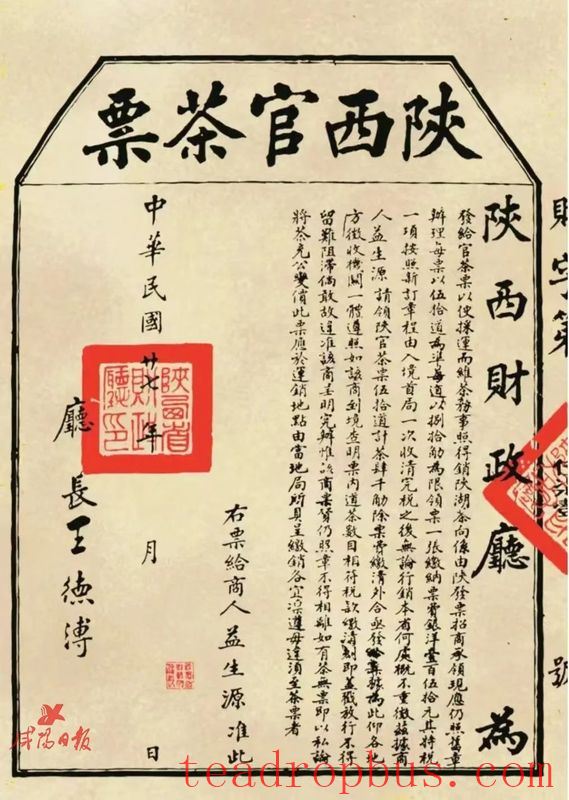 陝西官茶票
財字第 號
陝西財政廳 為
發給官茶票以使採運而維茶務事照得銷陝湖茶向係由陝發票招商承領現應仍照舊章
辦理每票以伍拾道為準每道以捌拾觔為限領票一張繳納票費銀洋壹百伍拾元其將稅
一項按照新訂章程由入境首局一次收清完稅之後無論行銷本省何處概不重徵茲據商
人益生源 請領陝官茶票伍拾道計茶肆千觔除票費繳清外合亟發給票據為此仰各地
方徵收機關一體遵照如該商到境查明票內道茶數目相符稅款繳清即蓋戳放行不得
留難阻滯倘敢故違准該商呈明究辦惟商票貨仍照章不得相離如有茶無票即以私論
將茶充公變價此票應於運銷地點由當地局所具呈繳銷各宜凜遵毋違須至茶票者
右票給商人益生源准此
中華民國廿七年 月 日
陝西省財政廳印
廳長王德溥
咸陽日報
teadropbus.com